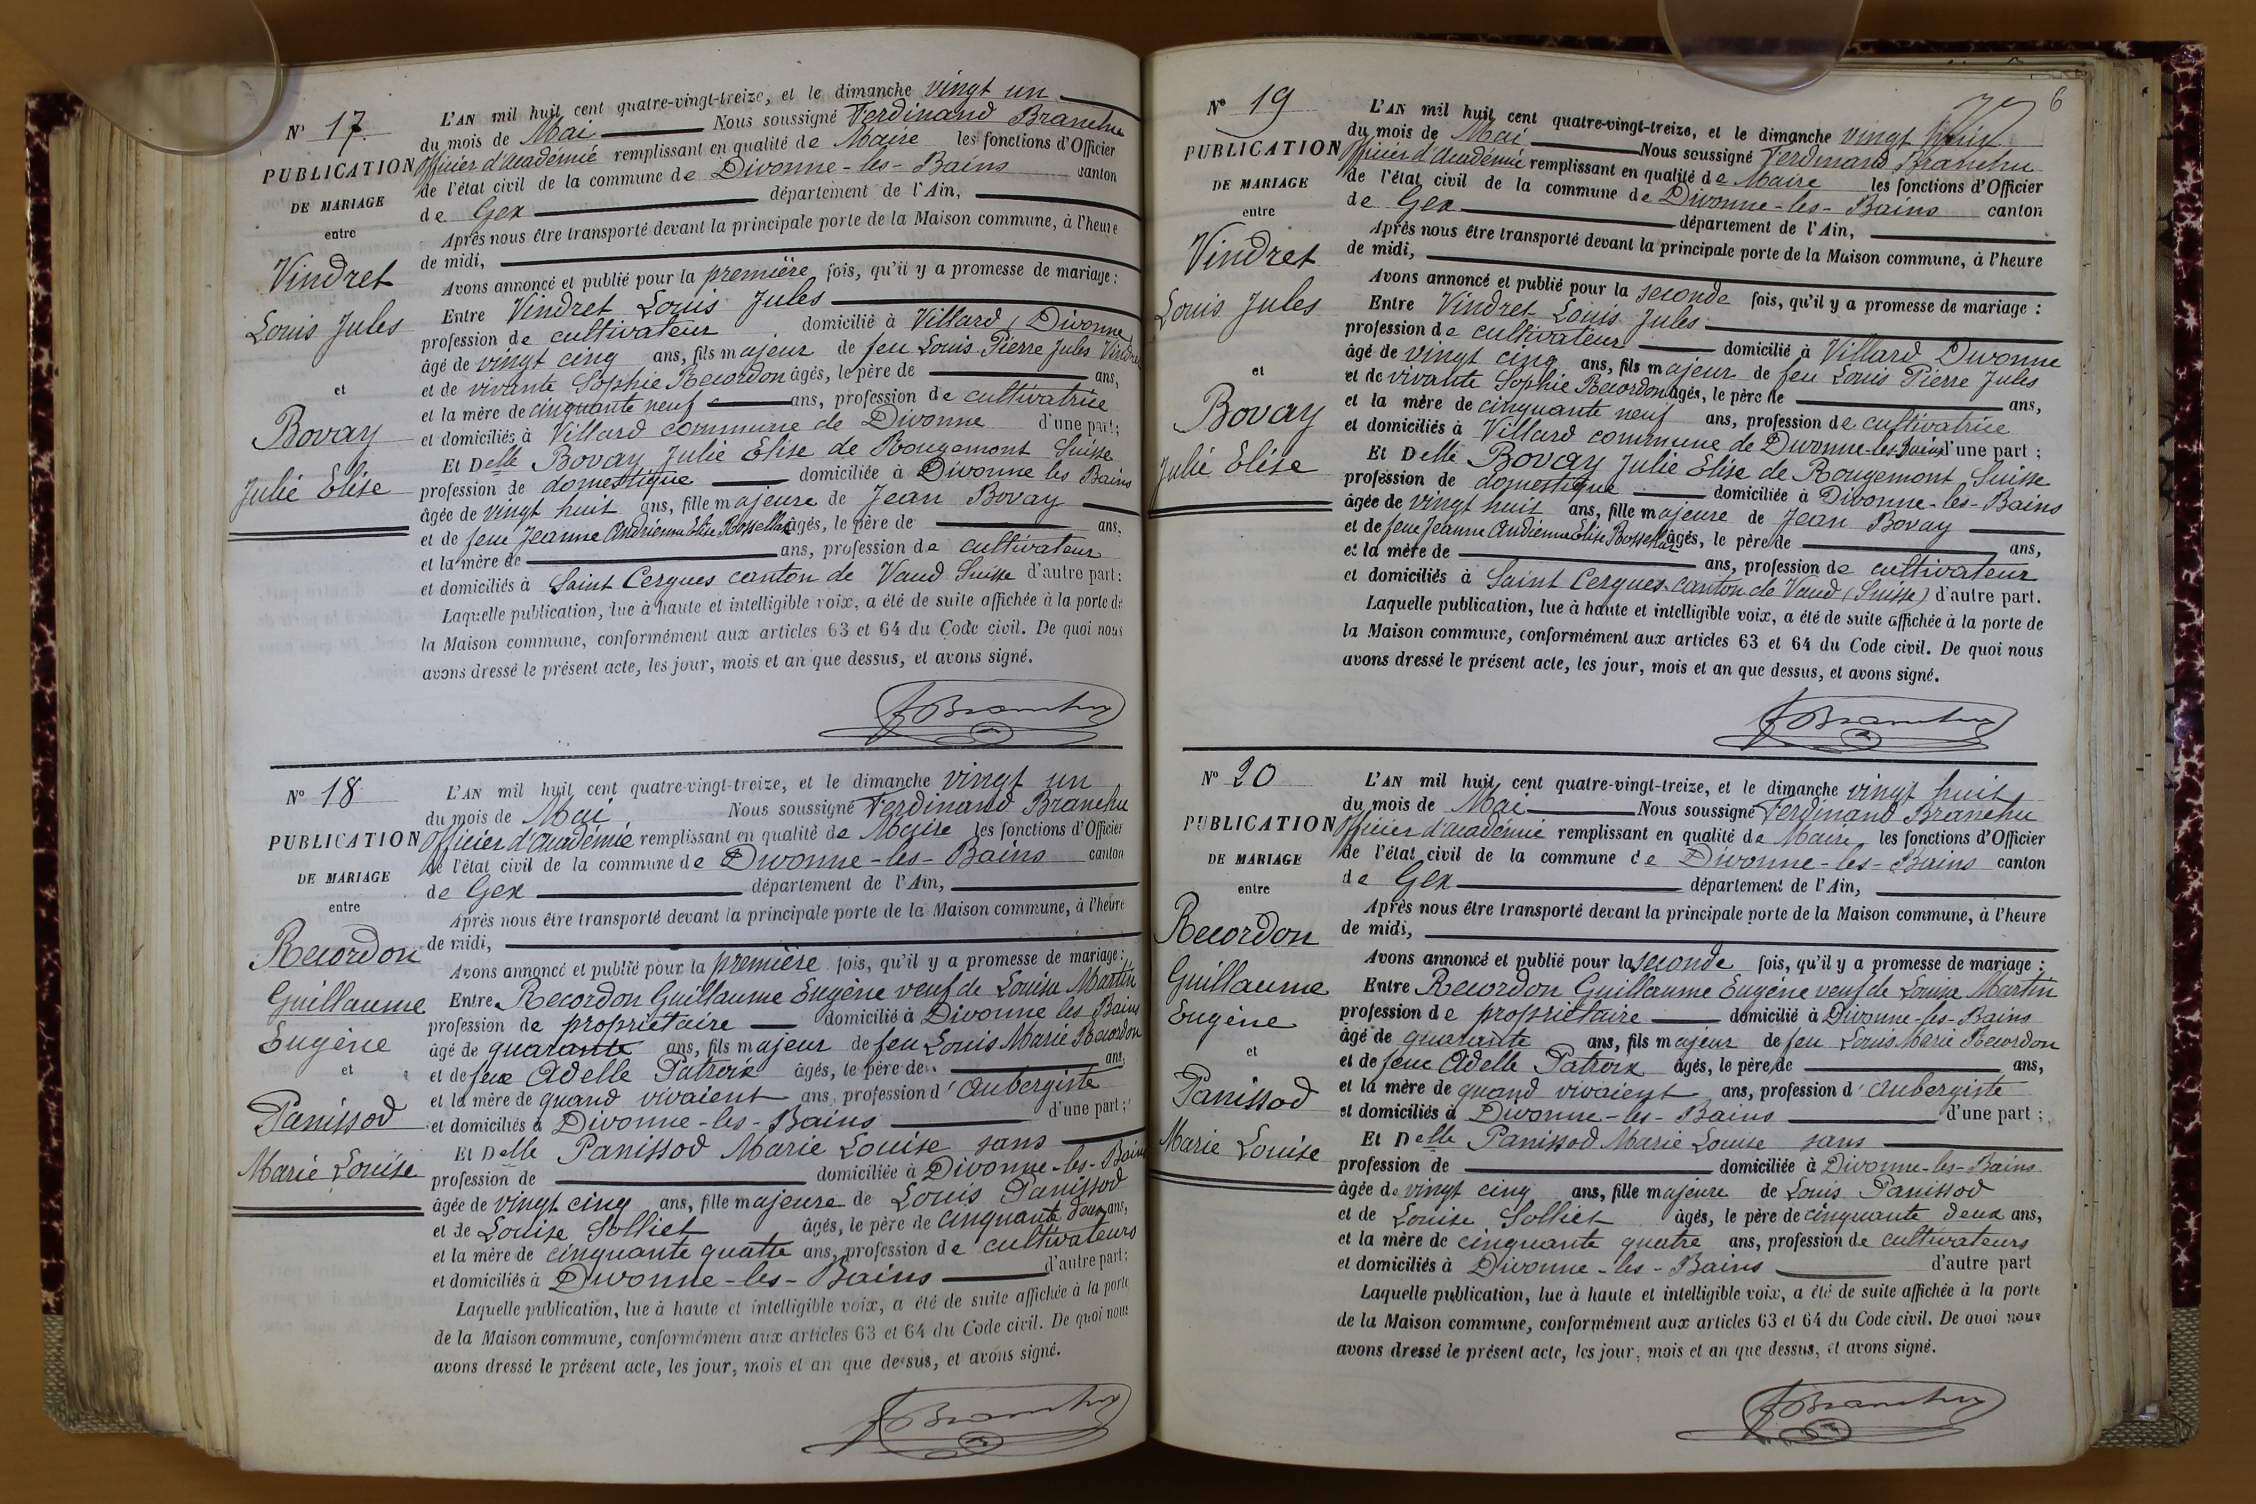 N° 17
PUBLICATION
DE MARIAGE
entre
Vindret
Louis Jules
et
Bovay
Julie Elise
L'AN mil huit cent quatre-vingt-treize, et le dimanche vingt un
du mois de Mai Nous soussigné Ferdinand Branchu
Officier d'Académie remplissant en qualité de Maire les fonctions d'Officier
de l'état civil de la commune de Divonne-les-Bains canton
de Gex département de l'Ain,
Après nous être transporté devant la principale porte de la Maison commune, à l'heure
de midi,
Avons annoncé et publié pour la première fois, qu'il y a promesse de mariage :
Entre Vindret Louis Jules
profession de cultivateur domicilié à Villard, Divonne
âgé de vingt cinq ans, fils majeur de feu Louis Pierre Jules Vindret
et de vivante Sophie Recordon âgés, le père de ans,
et la mère de cinquante neuf ans, profession de cultivatrice
et domiciliés à Villard commune de Divonne d'une part ;
Et Delle Bovay Julie Elise de Rougemont Suisse
profession de domestique domiciliée à Divonne les Bains
âgée de vingt huit ans, fille majeure de Jean Bovay
et de feue Jeanne Andrienne Elise âgés, le père de ans,
et la mère de ans, profession de cultivateur
et domiciliés à Saint Cergues canton de Vaud Suisse d'autre part :
Laquelle publication, lue à haute et intelligible voix, a été de suite affichée à la porte de
la Maison commune, conformément aux articles 63 et 64 du Code civil. De quoi nous
avons dressé le présent acte, les jour, mois et an que dessus, et avons signé.
F Branchu
N° 18
PUBLICATION
DE MARIAGE
entre
Recordon
Guillaume
Eugène
et
Panissod
Marie Louise
L'AN mil huit cent quatre-vingt-treize, et le dimanche vingt un
du mois de Mai Nous soussigné Ferdinand Branchu
Officier d'Académie remplissant en qualité de Maire les fonctions d'Officier
de l'état civil de la commune de Divonne-les-Bains canton
de Gex département de l'Ain,
Après nous être transporté devant la principale porte de la Maison commune, à l'heure
de midi,
Avons annoncé et publié pour la première fois, qu'il y a promesse de mariage :
Entre Recordon Guillaume Eugène veuf de Louise Martin
profession de propriétaire domicilié à Divonne les Bains
âgé de quarante ans, fils majeur de feu Louis Marie Recordon
et de feue Adelle Patroix âgés, le père de ans,
et la mère de quand vivaient ans, profession d'Aubergiste
et domiciliés à Divonne-les-Bains d'une part ;
Et Delle Panissod Marie Louise sans
profession de domiciliée à Divonne-les-Bains
âgée de vingt cinq ans, fille majeure de Louis Panissod
et de Louise Solliet âgés, le père de cinquante deux ans,
et la mère de cinquante quatre ans, profession de cultivateurs
et domiciliés à Divonne-les-Bains d'autre part ;
Laquelle publication, lue à haute et intelligible voix, a été de suite affichée à la porte
de la Maison commune, conformément aux articles 63 et 64 du Code civil. De quoi nous
avons dressé le présent acte, les jour, mois et an que dessus, et avons signé.
F Branchu
6
N° 19
PUBLICATION
DE MARIAGE
entre
Vindret
Louis Jules
et
Bovay
Julie Elise
L'AN mil huit cent quatre-vingt-treize, et le dimanche vingt huit
du mois de Mai Nous soussigné Ferdinand Branchu
Officier d'Académie remplissant en qualité de Maire les fonctions d'Officier
de l'état civil de la commune de Divonne-les-Bains canton
de Gex département de l'Ain,
Après nous être transporté devant la principale porte de la Maison commune, à l'heure
de midi,
Avons annoncé et publié pour la seconde fois, qu'il y a promesse de mariage :
Entre Vindret Louis Jules
profession de cultivateur domicilié à Villard Divonne
âgé de vingt cinq ans, fils majeur de feu Louis Pierre Jules
et de vivante Sophie Recordon âgés, le père de ans,
et la mère de cinquante neuf ans, profession de cultivatrice
et domiciliés à Villard commune de Divonne-les-Bains d'une part ;
Et Delle Bovay Julie Elise de Rougemont Suisse
profession de domestique domiciliée à Divonne-les-Bains
âgée de vingt huit ans, fille majeure de Jean Bovay
et de feue Jeanne Andrienne Elise âgés, le père de ans,
et la mère de ans, profession de cultivateur
et domiciliés à Saint Cergues canton de Vaud (Suisse) d'autre part.
Laquelle publication, lue à haute et intelligible voix, a été de suite affichée à la porte de
la Maison commune, conformément aux articles 63 et 64 du Code civil. De quoi nous
avons dressé le présent acte, les jour, mois et an que dessus, et avons signé.
F Branchu
N° 20
PUBLICATION
DE MARIAGE
entre
Recordon
Guillaume
Eugène
et
Panissod
Marie Louise
L'AN mil huit cent quatre-vingt-treize, et le dimanche vingt huit
du mois de Mai Nous soussigné Ferdinand Branchu
Officier d'Académie remplissant en qualité de Maire les fonctions d'Officier
de l'état civil de la commune de Divonne-les-Bains canton
de Gex département de l'Ain,
Après nous être transporté devant la principale porte de la Maison commune, à l'heure
de midi,
Avons annoncé et publié pour la seconde fois, qu'il y a promesse de mariage :
Entre Recordon Guillaume Eugène veuf de Louise Martin
profession de propriétaire domicilié à Divonne-les-Bains
âgé de quarante ans, fils majeur de feu Louis Marie Recordon
et de feue Adelle Patroix âgés, le père de ans,
et la mère de quand vivaient ans, profession d'Aubergiste
et domiciliés à Divonne-les-Bains d'une part ;
Et Delle Panissod Marie Louise sans
profession de domiciliée à Divonne-les-Bains
âgée de vingt cinq ans, fille majeure de Louis Panissod
et de Louise Solliet âgés, le père de cinquante deux ans,
et la mère de cinquante quatre ans, profession de cultivateurs
et domiciliés à Divonne-les-Bains d'autre part
Laquelle publication, lue à haute et intelligible voix, a été de suite affichée à la porte
de la Maison commune, conformément aux articles 63 et 64 du Code civil. De quoi nous
avons dressé le présent acte, les jour, mois et an que dessus, et avons signé.
F Branchu